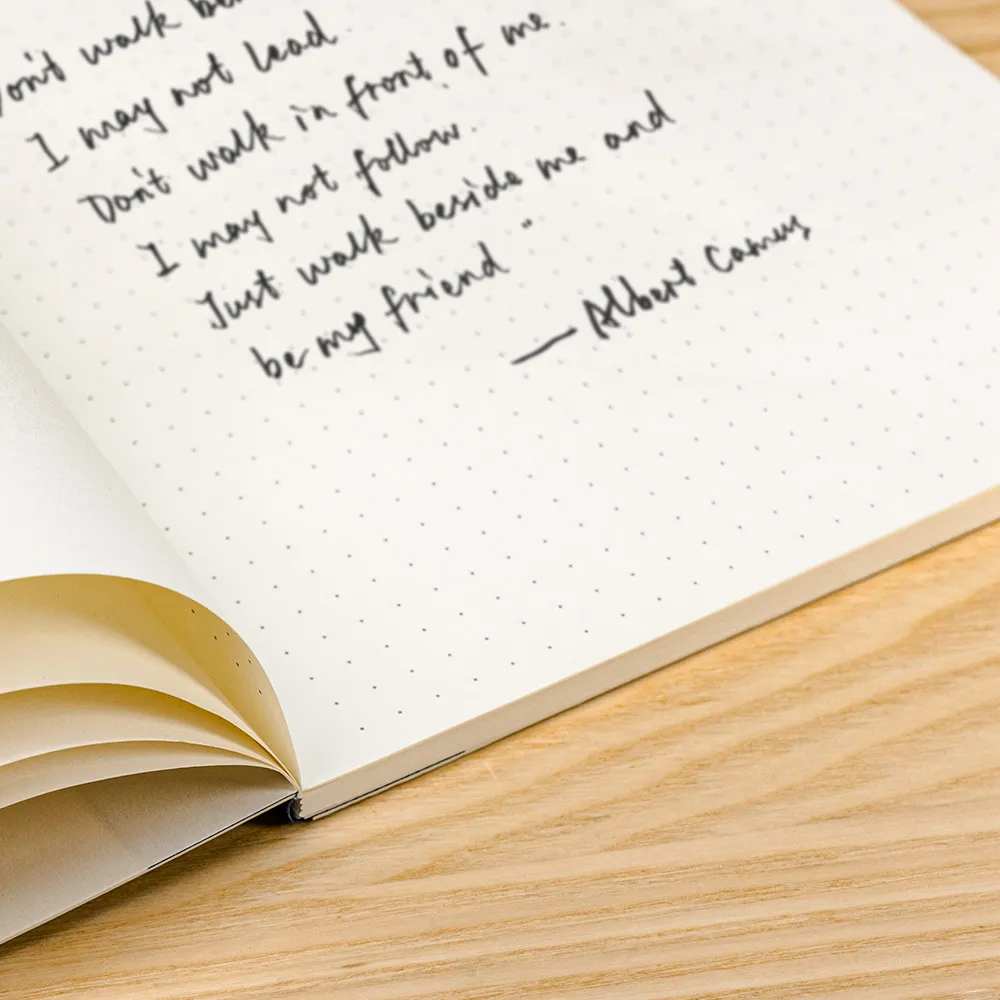 Don't walk be
I may not lead.
Don't walk in front of me.
I may not follow.
Just walk beside me and
be my friend "
— Albert Camus